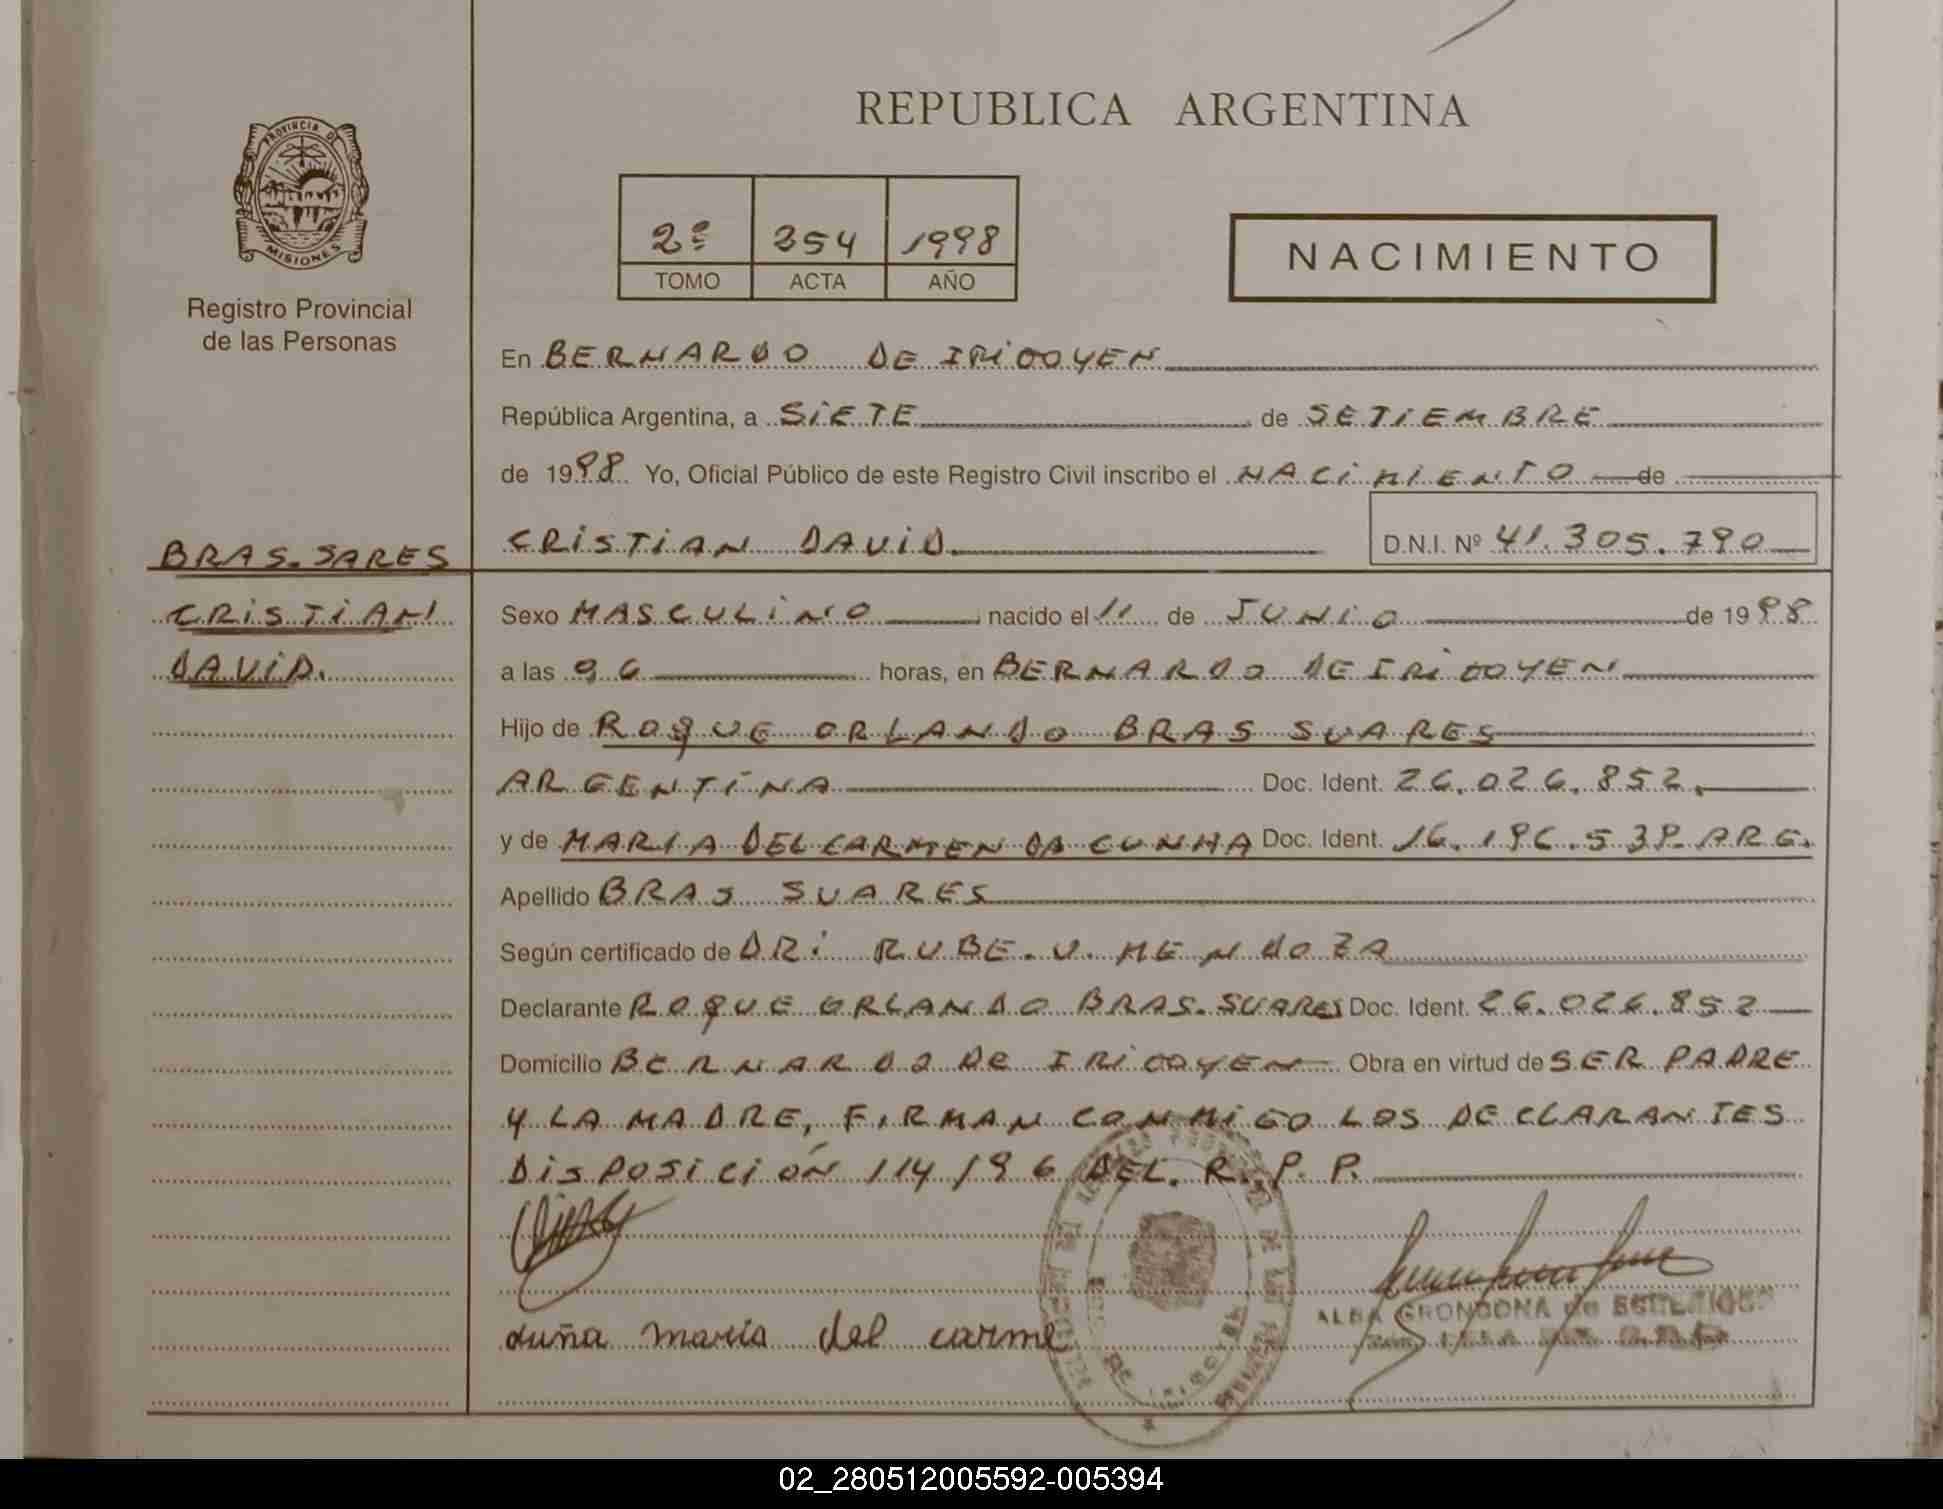 REPUBLICA ARGENTINA
PROVINCIA DE MISIONES
Registro Provincial
de las Personas
2º 354 1998
TOMO ACTA AÑO
NACIMIENTO
En BERNARDO DE IRIGOYEN
República Argentina, a SIETE de SETIEMBRE
de 1998 Yo, Oficial Público de este Registro Civil inscribo el NACIMIENTO de
BRAS. SARES
CRISTIAN
DAVID.
CRISTIAN DAVID. D.N.I. Nº 41.305.790
Sexo MASCULINO nacido el 11 de JUNIO de 1998
a las 9,6 horas, en BERNARDO DE IRIGOYEN
Hijo de ROQUE ORLANDO BRAS SUARES
ARGENTINA Doc. Ident. 26.026.852.
y de MARIA DEL CARMEN DA CUNHA Doc. Ident. 16.196.539. ARG.
Apellido BRAS SUARES
Según certificado de DR. RUBE. V. MENDOZA
Declarante ROQUE ORLANDO BRAS. SUARES Doc. Ident. 26.026.852
Domicilio BERNARDO DE IRIGOYEN Obra en virtud de SER PADRE
Y LA MADRE, FIRMAN CONMIGO LOS DECLARANTES
DISPOSICIÓN 114/96 DEL. R. P. P.
duña maria del carme
ALBA GRONDONA de
DE IRIGOYEN
02_280512005592-005394